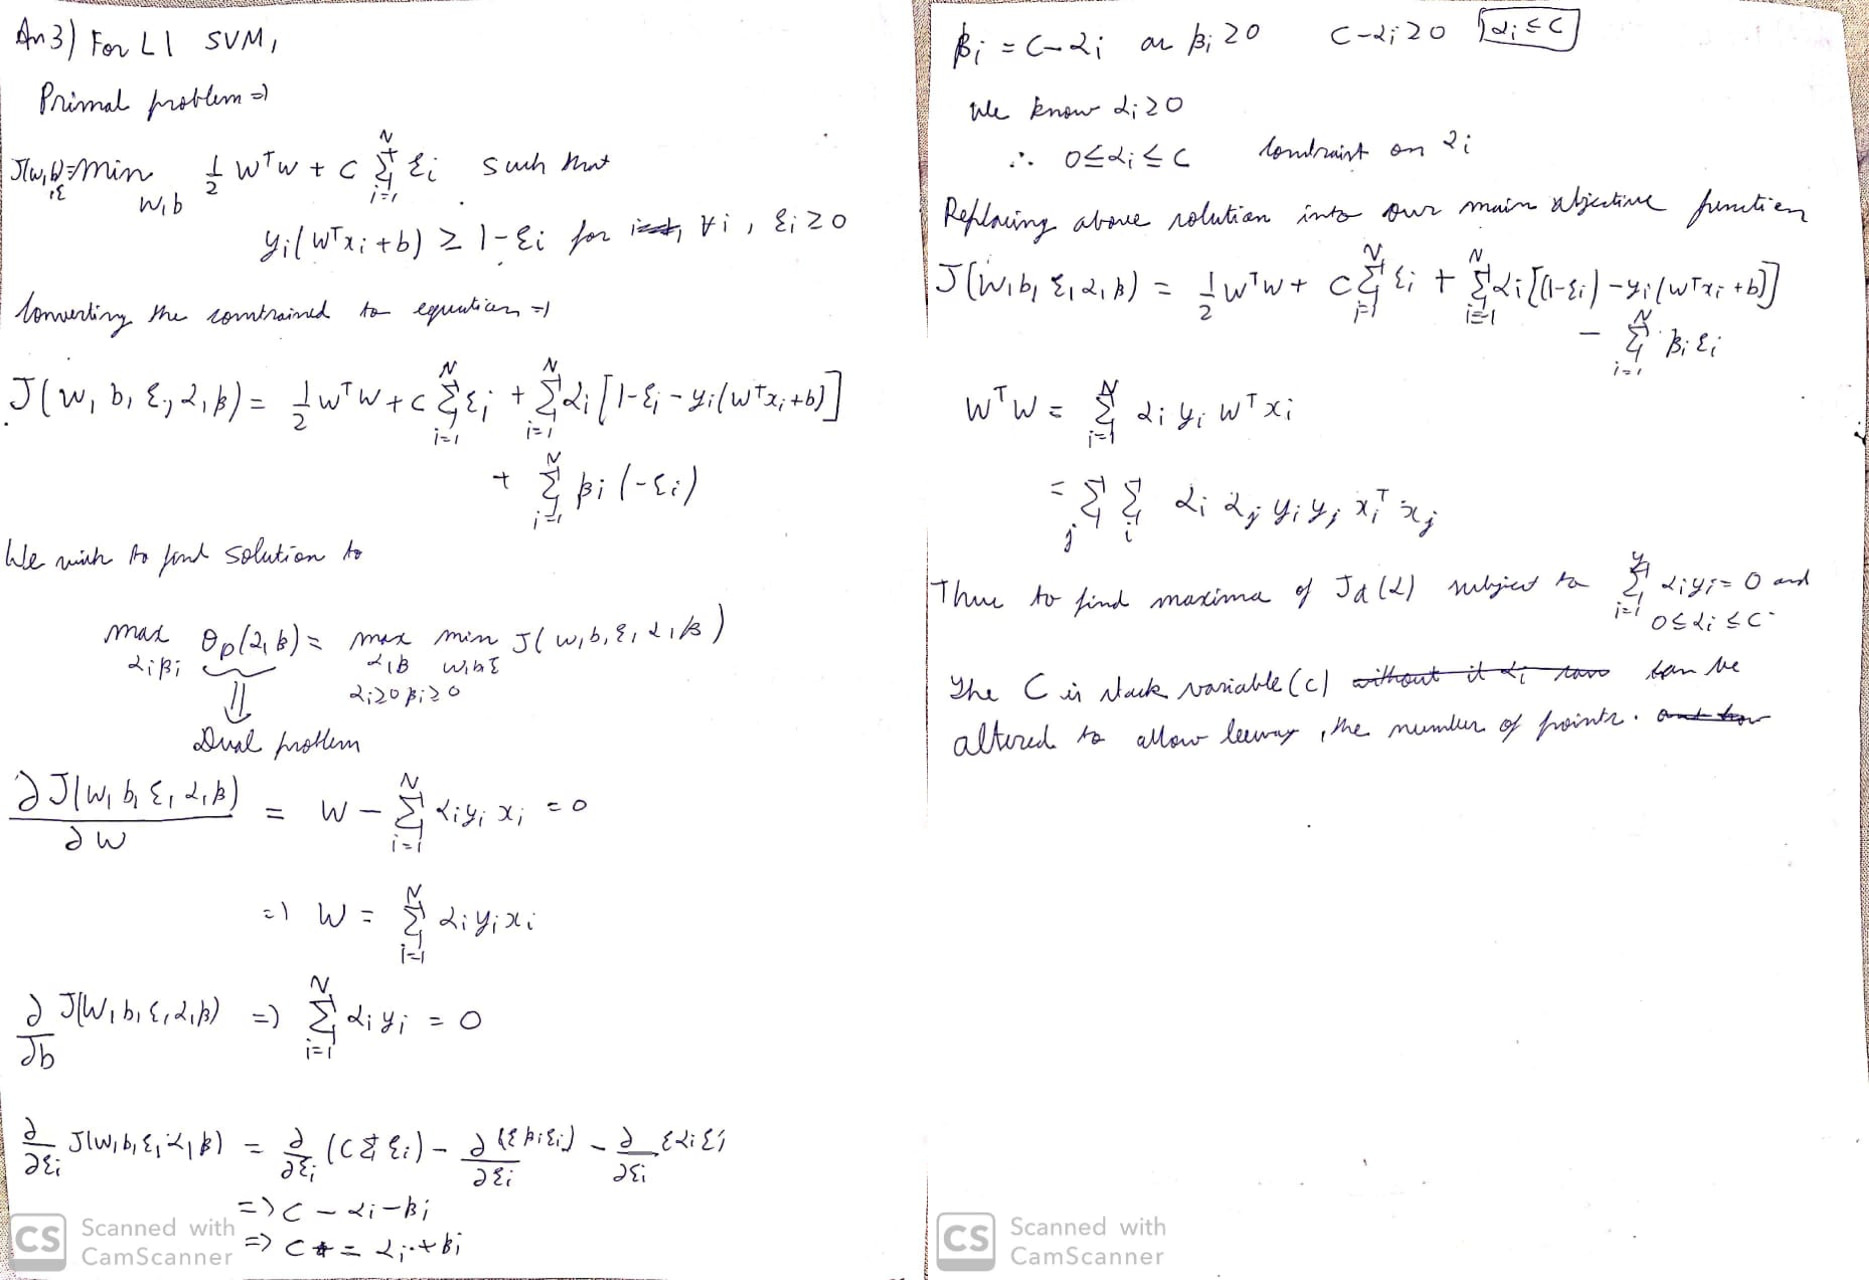 An3) For L1 SVM,
Primal problem ⇒
J(w,b,ξ) = min_{w,b} 1/2 wᵀw + C Σ_{i=1}^{N} ξi such that
yi(wᵀxi+b) ≥ 1-ξi for ∀i, ξi≥0
Converting the constrained to equation ⇒
J(w, b, ξ, α, β) = 1/2 wᵀw + C Σ_{i=1}^{N} ξi + Σ_{i=1}^{N} αi [1-ξi - yi(wᵀxi+b)]
+ Σ_{i=1}^{N} βi (-ξi)
We wish to find solution to
max_{αi βi} θD(α,β) = max_{α,β αi≥0 βi≥0} min_{w,b,ξ} J(w,b,ξ,α,β)
⇓
Dual problem
∂J(w,b,ξ,α,β)/∂w = w - Σ_{i=1}^{N} αi yi xi = 0
⇒ w = Σ_{i=1}^{N} αi yi xi
∂/∂b J(w,b,ξ,α,β) ⇒ Σ_{i=1}^{N} αi yi = 0
∂/∂ξi J(w,b,ξ,α,β) = ∂/∂ξi (C Σ ξi) - ∂(Σ βi ξi)/∂ξi - ∂/∂ξi Σ αi ξi
⇒ C - αi - βi
⇒ C = αi + βi
CS Scanned with
CamScanner
βi = C-αi as βi ≥0 C-αi ≥0 αi ≤ C
We know αi ≥0
∴ 0≤αi≤C Constraint on αi
Replacing above solution into our main objective function
J(w,b,ξ,α,β) = 1/2 wᵀw + C Σ_{i=1}^{N} ξi + Σ_{i=1}^{N} αi [(1-ξi) - yi(wᵀxi+b)]
- Σ_{i=1}^{N} βi ξi
wᵀw = Σ_{i=1}^{N} αi yi wᵀxi
= Σ_j Σ_i αi αj yi yj xiᵀ xj
Thus to find maxima of Jd(α) subject to Σ_{i=1} αi yi = 0 and
0≤αi≤C
The C is slack variable (c) without it αi can be
altered to allow leeway, the number of points.
CS Scanned with
CamScanner